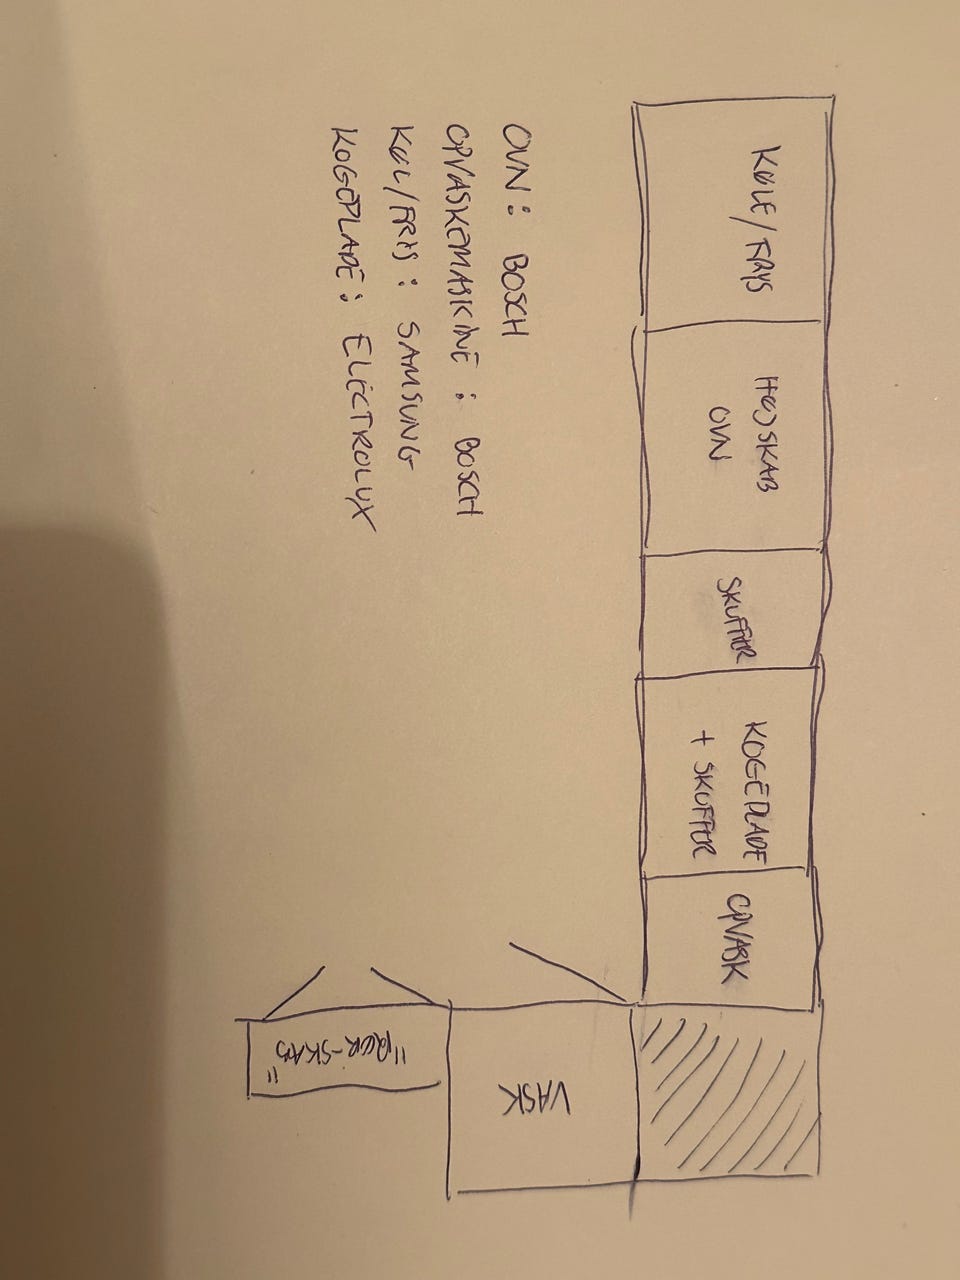 KØLE/FRYS
HØJSKAB
OVN
SKUFFER
KOGEPLADE
+ SKUFFER
OPVASK
VASK
"RØR-SKAB"
OVN: BOSCH
OPVASKEMASKINE: BOSCH
KØL/FRYS: SAMSUNG
KOGEPLADE: ELECTROLUX